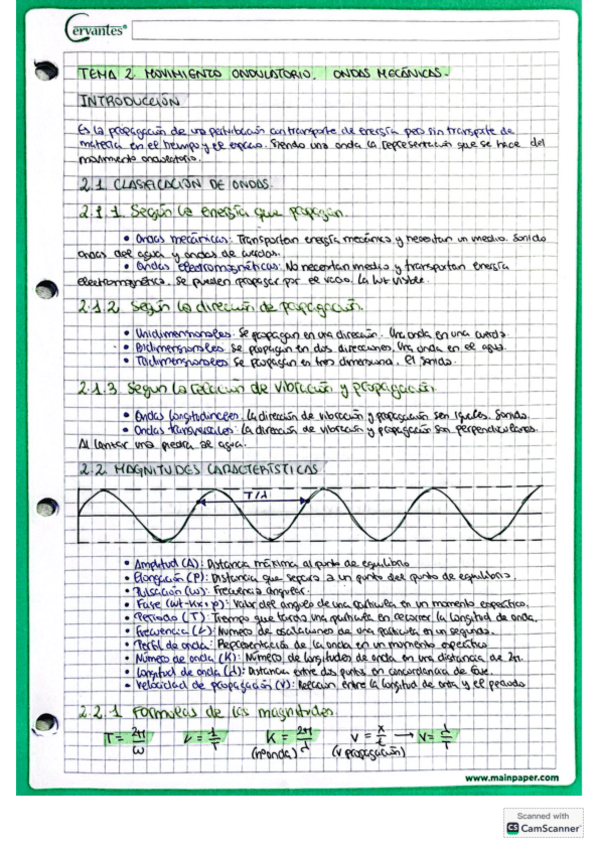 Cervantes
TEMA 2. MOVIMIENTO ONDULATORIO. ONDAS MECÁNICAS.
INTRODUCCIÓN
Es la propagación de una perturbación con transporte de energía pero sin transporte de
materia en el tiempo y el espacio. Siendo una onda la representación que se hace del
movimiento ondulatorio.
2.1 CLASIFICACIÓN DE ONDAS.
2.1.1. Según la energía que propagan.
• Ondas mecánicas: Transportan energía mecánica y necesitan un medio. Sonido
ondas del agua y ondas de cuerdas.
• Ondas electromagnéticas: No necesitan medio y transportan energía
electromagnética. Se pueden propagar por el vacío. La luz visible.
2.1.2. Según la dirección de propagación.
• Unidimensionales. Se propagan en una dirección. Una onda en una cuerda.
• Bidimensionales Se propagan en dos direcciones. Una onda en el agua.
• Tridimensionales Se propagan en tres dimensiones. El sonido.
2.1.3 Según la relación de vibración y propagación.
• Ondas longitudinales. La dirección de vibración y propagación son iguales. Sonido.
• Ondas transversales: La dirección de vibración y propagación son perpendiculares.
Al lanzar una piedra al agua.
2.2. MAGNITUDES CARACTERÍSTICAS
T/λ
• Amplitud (A): Distancia máxima al punto de equilibrio
• Elongación (P): Distancia que separa a un punto del punto de equilibrio.
• Pulsación (ω): Frecuencia angular.
• Fase (ωt-kx+φ): Valor del ángulo de una partícula en un momento específico.
• Periodo (T): Tiempo que tarda una partícula en recorrer la longitud de onda.
• Frecuencia (ν): Número de oscilaciones de una partícula en un segundo.
• Perfil de onda: Representación de la onda en un momento específico
• Número de onda (K): Número de longitudes de onda en una distancia de 2π.
• Longitud de onda (λ): Distancia entre dos puntos en concordancia de fase.
• Velocidad de propagación (v): Relación entre la longitud de onda y el periodo
2.2.1 Formulas de las magnitudes.
T = 2π/ω ν = 1/T K = 2π/λ v = x/t → v = λ/T
(nº onda) (v propagación)
www.mainpaper.com
Scanned with
CS CamScanner